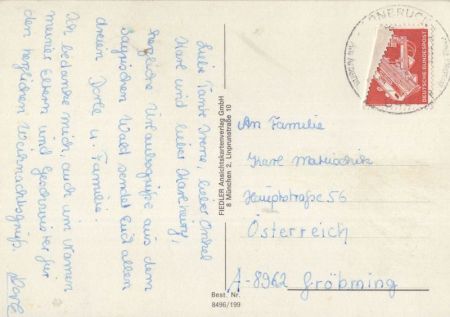 Liebe Tante Irene, lieber Onkel
Karl und lieber Karlheinz,
herzliche Urlaubsgrüße aus dem
Bayrischen Wald sendet Euch allen
dreien Dorle u. Familie.
Ich bedanke mich, auch im Namen
meiner Eltern und Geschwister für
den herzlichen Weihnachtsgruß.
Dorle
FIEDLER Ansichtskartenverlag GmbH
8 München 2, Linprunstraße 10
Best. Nr.
8496/199
DEUTSCHE BUNDESPOST
An Familie
Karl
Hauptstraße 56
Österreich
A-8962 Gröbming